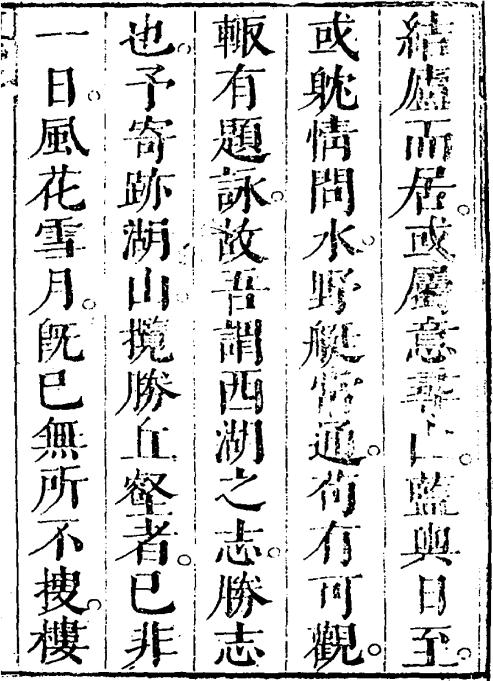 結廬而居。或屬意尋山。籃輿日至。
或躭情問水。野艇常通。苟有可觀。
輙有題詠。故吾謂西湖之志。勝志
也。予寄跡湖山。攬勝丘壑者。已非
一日。風花雪月。旣已無所不搜。樓